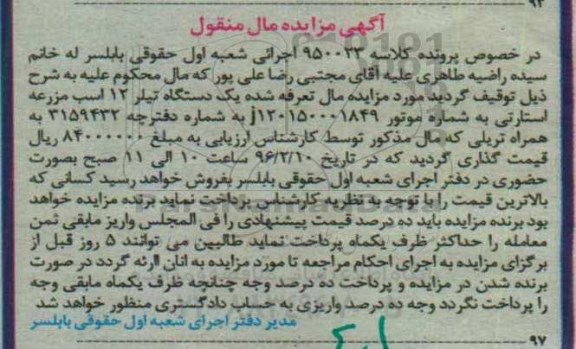 ۹۴
آگهی مزایده مال منقول
در خصوص پرونده کلاسه ۹۵۰۰۲۳ اجرائی شعبه اول حقوقی بابلسر له خانم
سیده راضیه طاهری علیه آقای مجتبی رضا علی پور که مال محکوم علیه به شرح
ذیل توقیف گردید مورد مزایده مال تعرفه شده یک دستگاه تیلر ۱۲ اسب مزرعه
استارتی به شماره موتور j۱۲۰۱۵۰۰۰۱۸۴۹ به شماره دفترچه ۳۱۵۹۴۳۲ به
همراه تریلی که مال مذکور توسط کارشناس ارزیابی به مبلغ ۸۴۰۰۰۰۰۰ ریال
قیمت گذاری گردید که در تاریخ ۹۶/۲/۱۰ ساعت ۱۰ الی ۱۱ صبح بصورت
حضوری در دفتر اجرای شعبه اول حقوقی بابلسر بفروش خواهد رسید کسانی که
بالاترین قیمت را با توجه به نظریه کارشناس پرداخت نماید برنده مزایده خواهد
بود برنده مزایده باید ده درصد قیمت پیشنهادی را فی المجلس واریز مابقی ثمن
معامله را حداکثر ظرف یکماه پرداخت نماید طالبین می توانند ۵ روز قبل از
برگزای مزایده به اجرای احکام مراجعه تا مورد مزایده به انان ارئه گردد در صورت
برنده شدن در مزایده و پرداخت ده درصد وجه چنانچه ظرف یکماه مابقی وجه
را پرداخت نگردد وجه ده درصد واریزی به حساب دادگستری منظور خواهد شد
مدیر دفتر اجرای شعبه اول حقوقی بابلسر
۹۷